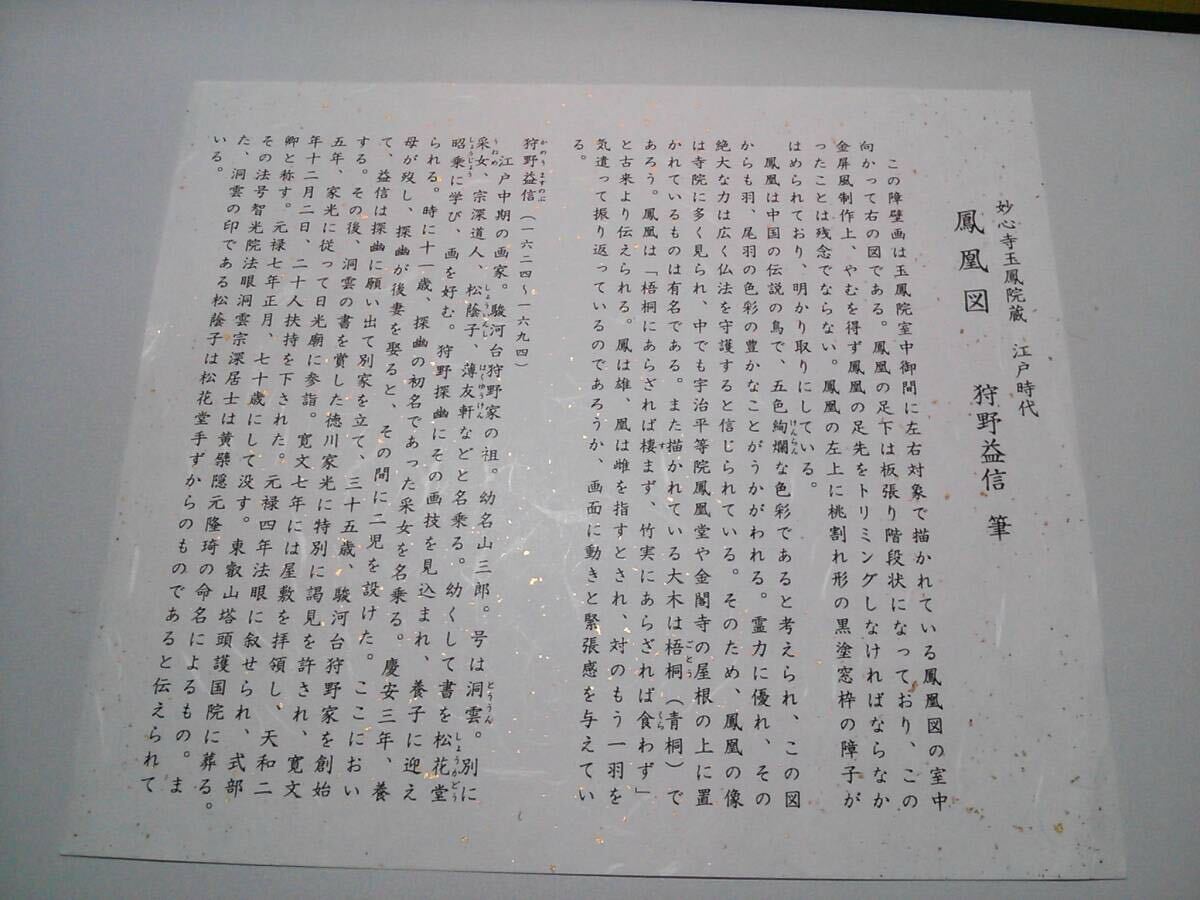 妙心寺玉鳳院蔵　江戸時代
鳳凰図　狩野益信　筆
この障壁画は玉鳳院室中御間に左右対象で描かれている鳳凰図の室中
向かって右の図である。鳳凰の足下は板張り階段状になっており、この
金屏風制作上、やむを得ず鳳凰の足先をトリミングしなければならなか
ったことは残念でならない。鳳凰の左上に桃割れ形の黒塗窓枠の障子が
はめられており、明かり取りにしている。
鳳凰は中国の伝説の鳥で、五色絢爛な色彩であると考えられ、この図
からも羽、尾羽の色彩の豊かなことがうかがわれる。霊力に優れ、その
絶大な力は広く仏法を守護すると信じられている。そのため、鳳凰の像
は寺院に多く見られ、中でも宇治平等院鳳凰堂や金閣寺の屋根の上に置
かれているものは有名である。また描かれている大木は梧桐（青桐）で
あろう。鳳凰は「梧桐にあらざれば棲まず、竹実にあらざれば食わず」
と古来より伝えられる。鳳は雄、凰は雌を指すとされ、対のもう一羽を
気遣って振り返っているのであろうか、画面に動きと緊張感を与えてい
る。
狩野益信（一六二四～一六九四）
江戸中期の画家。駿河台狩野家の祖。幼名山三郎。号は洞雲。別に
采女、宗深道人、松蔭子、薄友軒などと名乗る。幼くして書を松花堂
昭乗に学び、画を好む。狩野探幽にその画技を見込まれ、養子に迎え
られる。時に十一歳、探幽の初名であった采女を名乗る。慶安三年、養
母が歿し、探幽が後妻を娶ると、その間に二児を設けた。ここにおい
て、益信は探幽に願い出て別家を立て、三十五歳、駿河台狩野家を創始
する。その後、洞雲の書を賞した徳川家光に特別に謁見を許され、寛文
五年、家光に従って日光廟に参詣。寛文七年には屋敷を拝領し、天和二
年十二月二日、二十人扶持を下された。元禄四年法眼に叙せられ、式部
卿と称す。元禄七年正月、七十歳にして没す。東叡山塔頭護国院に葬る。
その法号智光院法眼洞雲宗深居士は黄檗隠元隆琦の命名によるもの。ま
た、洞雲の印である松蔭子は松花堂手ずからのものであると伝えられて
いる。